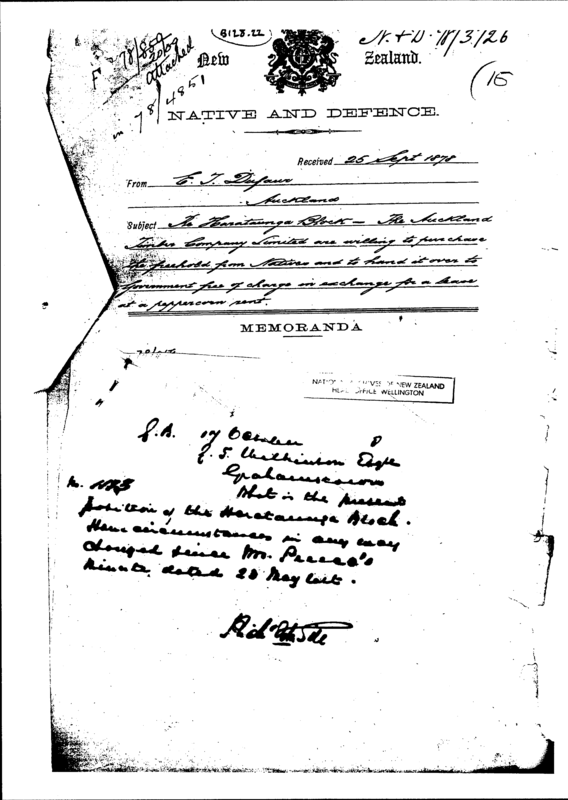 8128.22
N + D 78/3126
F 78/800
2060
attached
in 78/4851
(15
New Zealand.
NATIVE AND DEFENCE.
Received 25 Sept 1878
From E. T. Dufaur
Auckland
Subject The Harataunga Block — The Auckland
Timber Company Limited are willing to purchase
the freehold from Natives and to hand it over to
Government free of charge in exchange for a lease
at a peppercorn rent.
MEMORANDA
NATIONAL ARCHIVES OF NEW ZEALAND
HEAD OFFICE WELLINGTON
17 October 8
Wilkinson Esqre
Grahamstown
What is the present
position of the Harataunga Block.
Have circumstances in any way
changed since Mr. Preece's
minute dated 28 May last.